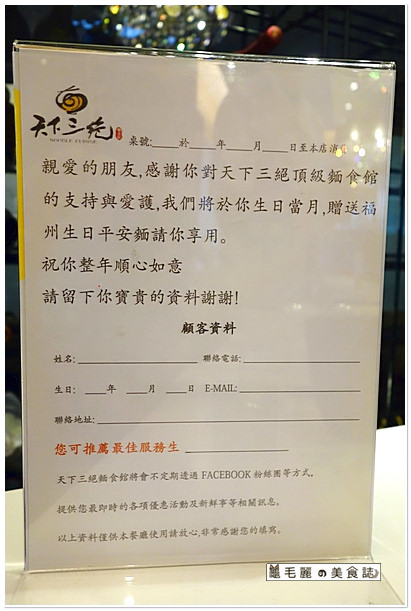 天下三絕
NOODLE CUISINE
桌號:____於____年____月____日至本店消
親愛的朋友,感謝你對天下三絕頂級麵食館
的支持與愛護,我們將於你生日當月,贈送福
州生日平安麵請你享用。
祝你整年順心如意
請留下你寶貴的資料謝謝!
顧客資料
姓名:____ 聯絡電話:____
生日:____年____月____日 E-MAIL:____
聯絡地址:____
您可推薦最佳服務生____
天下三絕麵食館將會不定期透過 FACEBOOK 粉絲團等方式,
提供您最即時的各項優惠活動及新鮮事等相關訊息。
以上資料僅供本餐廳使用請放心,非常感謝您的填寫。
毛麗の美食誌